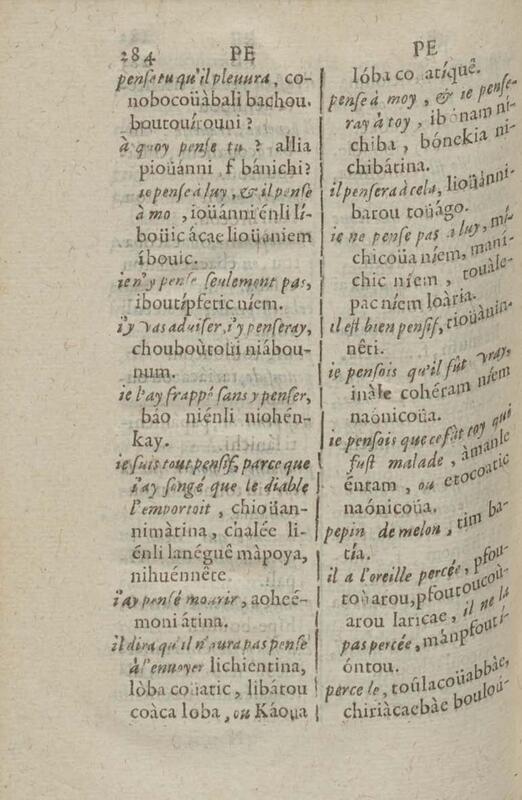 284 PE
pense tu qu'il pleuura, co-
nobocoüàbali bachou.
boutouírouni ?
à quoy pense tu ? allia
pioüánni f bánichi?
ie pense à luy, & il pense
à mo , ioüánniénli lí-
boüic ácae lioüániem
íbouic.
ie n'y pense seulement pas,
iboutípfetic níem.
i'y vas aduiser, i'y penseray,
chouboùtoüi niábou-
num.
ie l'ay frappé sans y penser,
báo niénli niohén-
kay.
ie suis tout pensif, parce que
i'ay songé que le diable
l'emportoit , chioüan-
nimàtina, chalée li-
énli lanéguê màpoya,
nihuénnête.
i'ay pensé mourir, aoheé-
moni átina.
il dira qu'il n'aura pas pensé
à l'enuoyer lichientina,
lòba couatic , libátou
coàca loba, ou Káoua
PE
lóba co atíquê.
pense à moy , & ie pense-
ray à toy , ibónam ní-
chiba , bónekia ni-
chibátina.
il pensera à cela, lioüánni-
batou toüágo.
ie ne pense pas a luy, mi-
chicoüa níem, maní-
chic níem , touàle-
pac níem loària.
il est bien pensif, tioüánin-
nêti.
ie pensois qu'il fût vray,
inàle cohéram níem
naónicoüa.
ie pensois que ce fût toy qui
fust malade , àmanle
éntam, ou etocoatic
naónicoüa.
pepin de melon , tim ba-
tía.
il a l'oreille percée, pfou-
toüarou, pfoutoucoü-
arou laricae, il ne la
pas percée, mánpfoutí-
óntou.
perce le, toûlacoüabbàe,
chiriàcaebàe boulou-